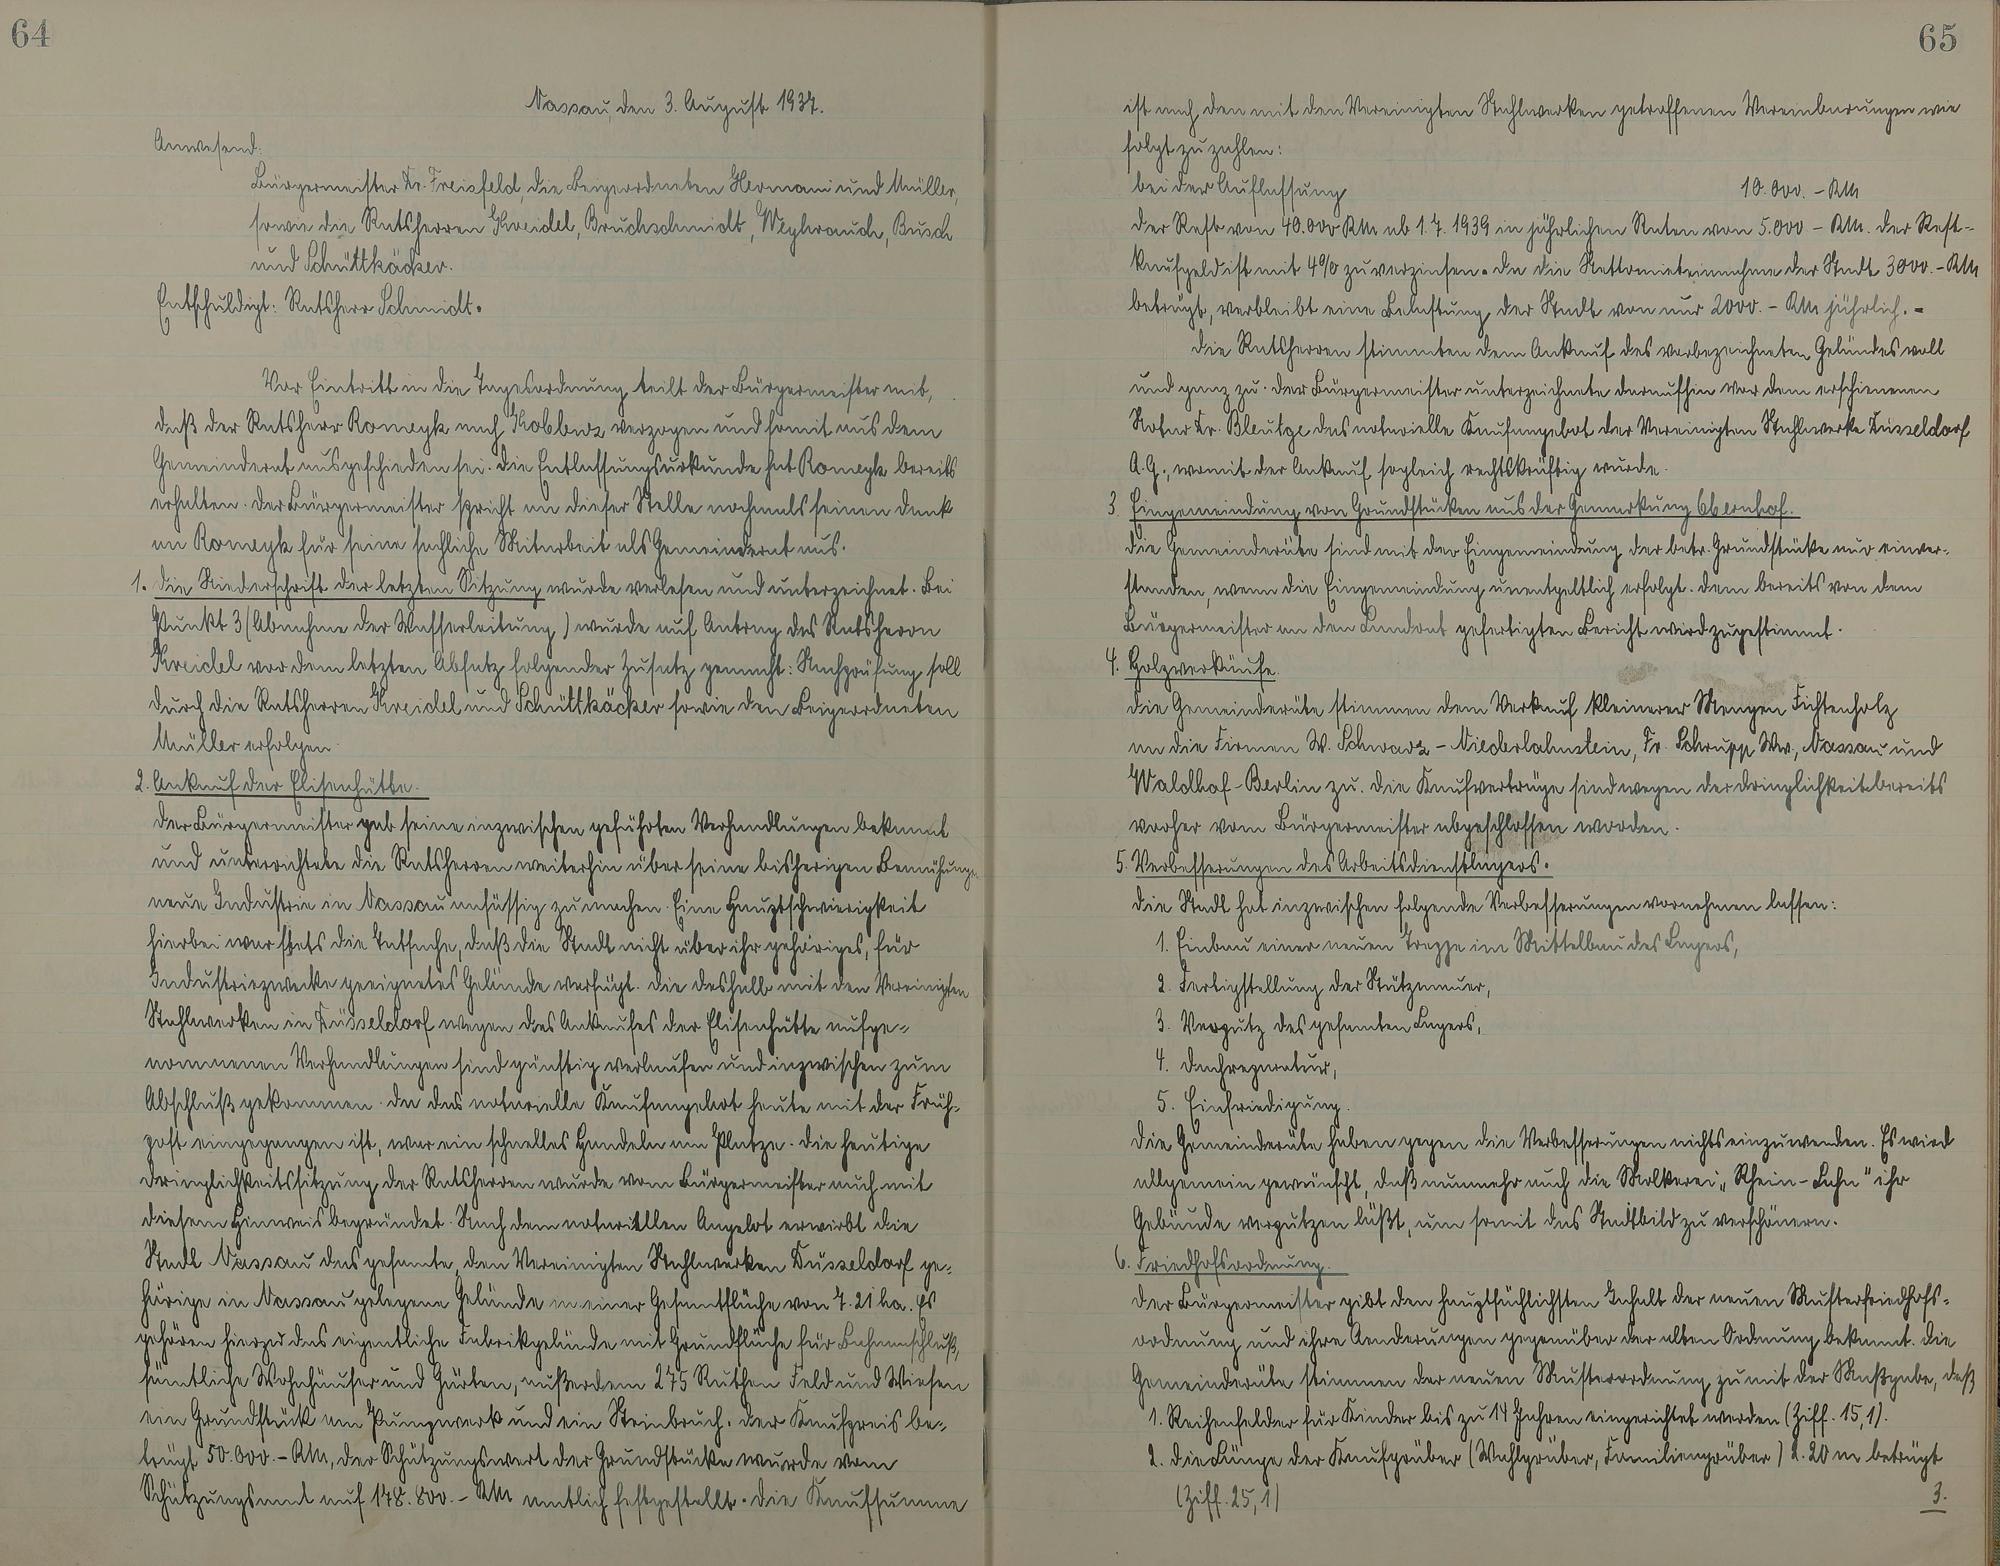 64
Nassau, den 3. August 1937.
Anwesend:
Bürgermeister Dr. Freisfeld, die Beigeordneten Hermani und Müller,
sowie die Ratsherren Kreidel, Bruchschmidt, Weyhrauch, Busch
und Schüttkäcker.
Entschuldigt: Ratsherr Schmidt.
Vor Eintritt in die Tagesordnung teilt der Bürgermeister mit,
daß der Ratsherr Romeyk nach Koblenz verzogen und somit aus dem
Gemeinderat ausgeschieden sei. Die Entlassungsurkunde hat Romeyk bereits
erhalten. Der Bürgermeister spricht an dieser Stelle nochmals seinen Dank
an Romeyk für seine sachliche Mitarbeit als Gemeinderat aus.
1. Die Niederschrift der letzten Sitzung wurde verlesen und unterzeichnet. Bei
Punkt 3 (Abnahme der Wasserleitung) wurde auf Antrag des Ratsherrn
Kreidel vor dem letzten Absatz folgender Zusatz gemacht: Nachprüfung soll
durch die Ratsherren Kreidel und Schüttkäcker sowie den Beigeordneten
Müller erfolgen.
2. Ankauf der Elisenhütte.
Der Bürgermeister gab seine inzwischen geführten Verhandlungen bekannt
und unterrichtete die Ratsherren weiterhin über seine bisherigen Bemühungen
neue Industrie in Nassau ansässig zu machen. Eine Hauptschwierigkeit
hierbei war stets die Tatsache, daß die Stadt nicht über ihr gehöriges, für
Industriezwecke geeignetes Gelände verfügt. Die deshalb mit den Vereinigten
Stahlwerken in Düsseldorf wegen des Ankaufes der Elisenhütte aufge-
nommenen Verhandlungen sind günstig verlaufen und inzwischen zum
Abschluß gekommen. Da das notarielle Kaufangebot heute mit der Früh-
post eingegangen ist, war ein schnelles Handeln am Platze. Die heutige
Dringlichkeitssitzung der Ratsherren wurde vom Bürgermeister auch mit
diesem Hinweis begründet. Nach dem notariellen Angebot erwirbt die
Stadt Nassau das gesamte, den Vereinigten Stahlwerken Düsseldorf ge-
hörige in Nassau gelegene Gelände in einer Gesamtfläche von 7.21 ha. Es
gehören hierzu das eigentliche Fabrikgelände mit Grundfläche für Bahnanschluß,
sämtliche Wohnhäuser und Gärten, außerdem 275 Ruthen Feld und Wiesen
ein Grundstück am Pumpwerk und ein Steinbruch. Der Kaufpreis be-
trägt 50.000.- RM, der Schätzungswert der Grundstücke wurde vom
Schätzungsamt auf 148.800.- RM amtlich festgestellt. Die Kaufsumme
65
ist nach den mit den Vereinigten Stahlwerken getroffenen Vereinbarungen wie
folgt zu zahlen:
bei der Auflassung 10.000.- RM
der Rest von 40.000 RM ab 1.7.1939 in jährlichen Raten von 5.000 - RM. Der Rest-
kaufgeld ist mit 4% zu verzinsen. Da die Nettomieteinnahme der Stadt 3000.- RM
beträgt, verbleibt eine Belastung der Stadt von nur 2000.- RM jährlich. -
Die Ratsherren stimmten dem Ankauf des vorbezeichneten Geländes voll
und ganz zu. Der Bürgermeister unterzeichnete daraufhin vor dem erschienenen
Notar Dr. Bleutge das notarielle Kaufangebot der Vereinigten Stahlwerke Düsseldorf
A.G., womit der Ankauf sogleich rechtskräftig wurde.
3. Eingemeindung von Grundstücken aus der Gemarkung Obernhof.
Die Gemeinderäte sind mit der Eingemeindung der betr. Grundstücke nur einver-
standen, wenn die Eingemeindung unentgeltlich erfolgt. Dem bereits von dem
Bürgermeister an den Landrat gefertigten Bericht wird zugestimmt.
4. Holzverkäufe.
Die Gemeinderäte stimmen dem Verkauf kleinerer Mengen Fichtenholz
an die Firmen W. Schwarz - Niederlahnstein, Fr. Schrupp Ww., Nassau und
Waldhof - Berlin zu. Die Kaufverträge sind wegen der Dringlichkeit bereits
vorher vom Bürgermeister abgeschlossen worden.
5. Verbesserungen des Arbeitsdienstlagers.
Die Stadt hat inzwischen folgende Verbesserungen vornehmen lassen:
1. Einbau einer neuen Treppe im Mittelbau des Lagers,
2. Fertigstellung der Stützmauer,
3. Verputz des gesamten Lagers,
4. Dachreparatur,
5. Einfriedigung.
Die Gemeinderäte haben gegen die Verbesserungen nichts einzuwenden. Es wird
allgemein gewünscht, daß nunmehr auch die Molkerei „Rhein-Lahn" ihr
Gebäude verputzen läßt, um somit das Stadtbild zu verschönern.
6. Friedhofsordnung.
Der Bürgermeister gibt den hauptsächlichsten Inhalt der neuen Musterfriedhofs-
ordnung und ihre Aenderungen gegenüber der alten Ordnung bekannt. Die
Gemeinderäte stimmen der neuen Musterordnung zu mit der Maßgabe, daß
1. Reihenfelder für Kinder bis zu 14 Jahren eingerichtet werden (Ziff. 15,1).
2. die Länge der Kaufgräber (Wahlgräber, Familiengräber) 2.20 m beträgt
(Ziff. 25,1)
3.